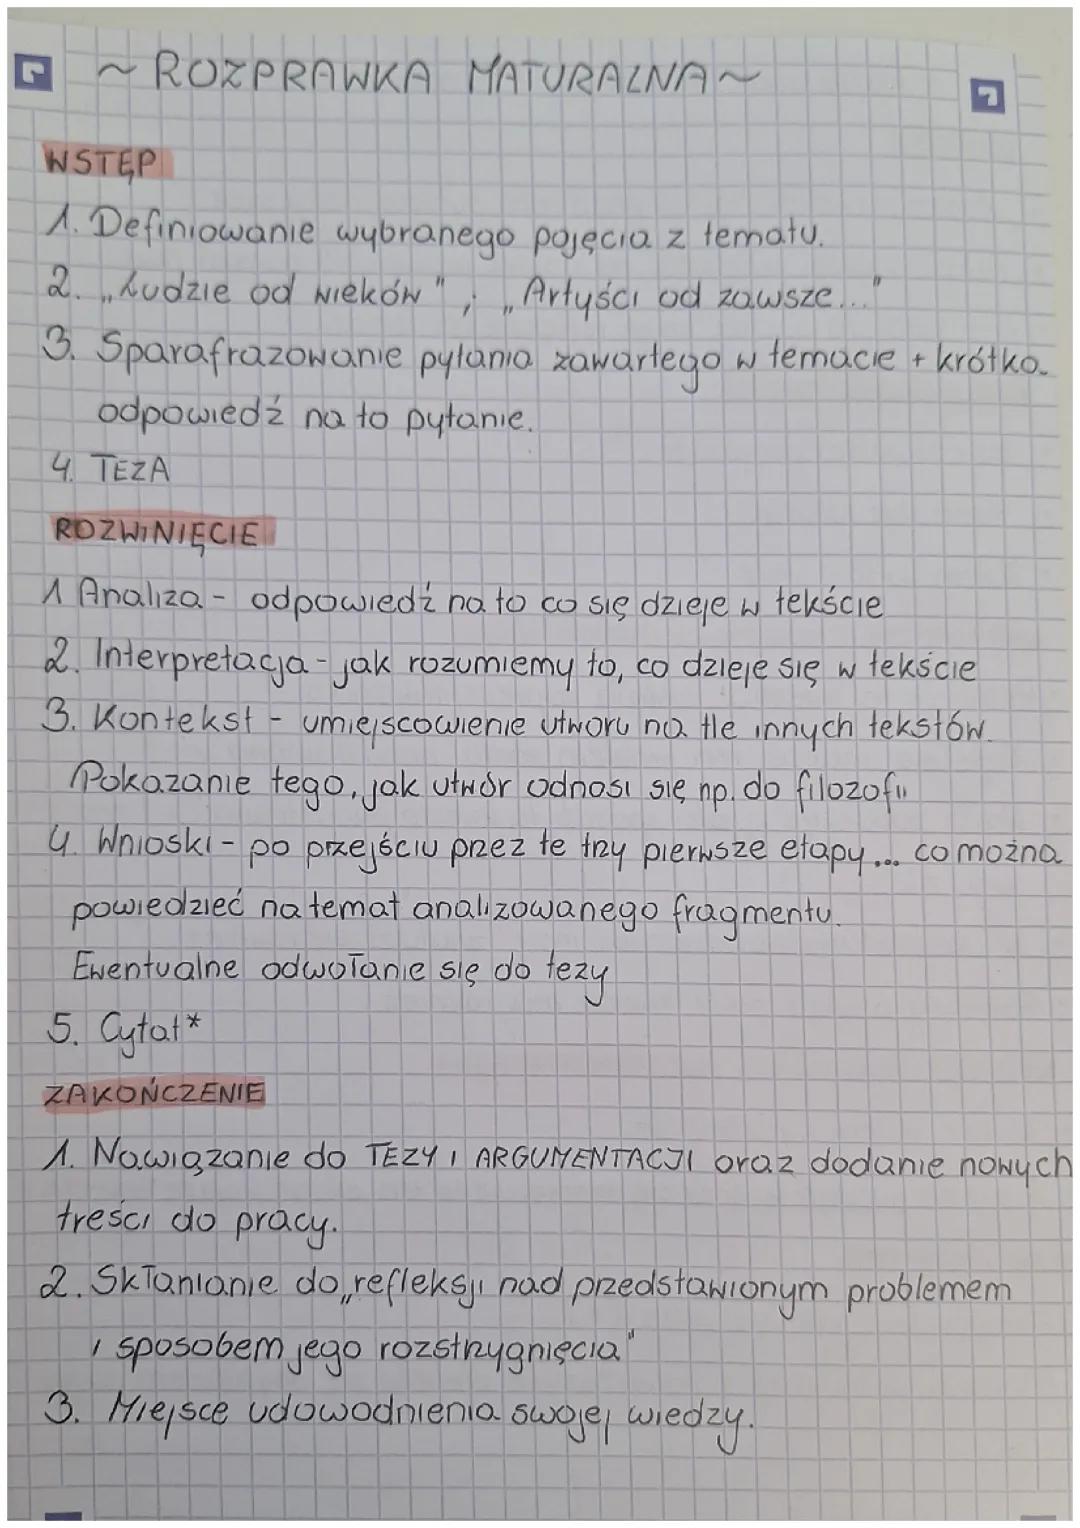 ~ ROZPRAWKA MATURALNA ~
WSTĘP
1. Definiowanie wybranego pojęcia z tematu.
2. „Ludzie od wieków" ; „Artyści od zawsze..."
3. Sparafrazowanie pytania zawartego w temacie + krótka
odpowiedź na to pytanie.
4. TEZA
ROZWINIĘCIE
1 Analiza - odpowiedź na to co się dzieje w tekście
2. Interpretacja - jak rozumiemy to, co dzieje się w tekście
3. Kontekst - umiejscowienie utworu na tle innych tekstów.
Pokazanie tego, jak utwór odnosi się np. do filozofii
4. Wnioski - po przejściu przez te trzy pierwsze etapy... co można
powiedzieć na temat analizowanego fragmentu.
Ewentualne odwołanie się do tezy
5. Cytat*
ZAKOŃCZENIE
1. Nawiązanie do TEZY i ARGUMENTACJI oraz dodanie nowych
treści do pracy.
2. Skłanianie do „refleksji nad przedstawionym problemem
i sposobem jego rozstrzygnięcia"
3. Miejsce udowodnienia swojej wiedzy.